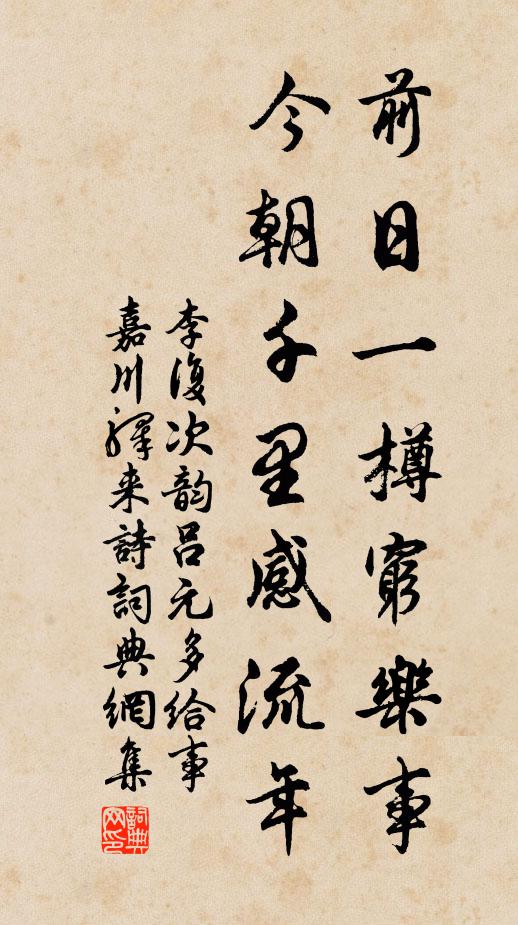 前日一樽窮樂事
今朝千里感流年
李復次韵吕元多給事
嘉川驛来詩詞典網集
詞典网印